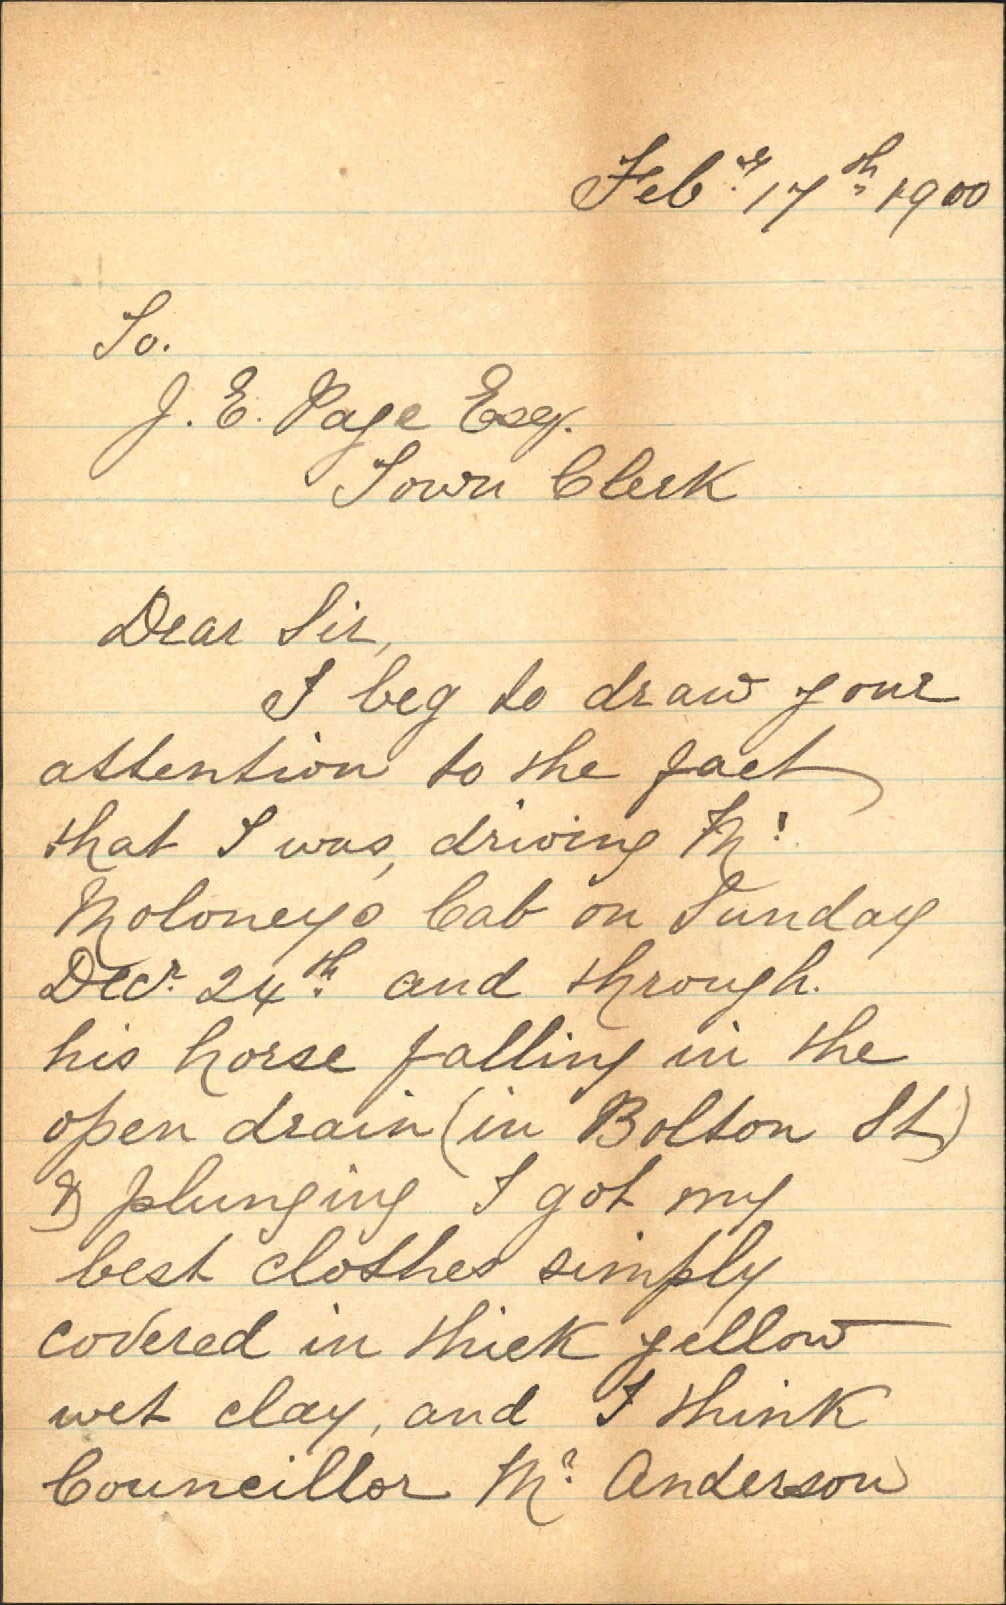 Febry. 17th. 1900
To.
J. E. Page Esq.
Town Clerk
Dear Sir,
I beg to draw your
attention to the fact
that I was, driving Mr.
Moloneys Cab on Sunday
Decr. 24th. and through.
his horse falling in the
open drain (in Bolton St)
& plunging I got my
best clothes simply
covered in thick yellow
wet clay, and I think
Councillor Mr. Anderson